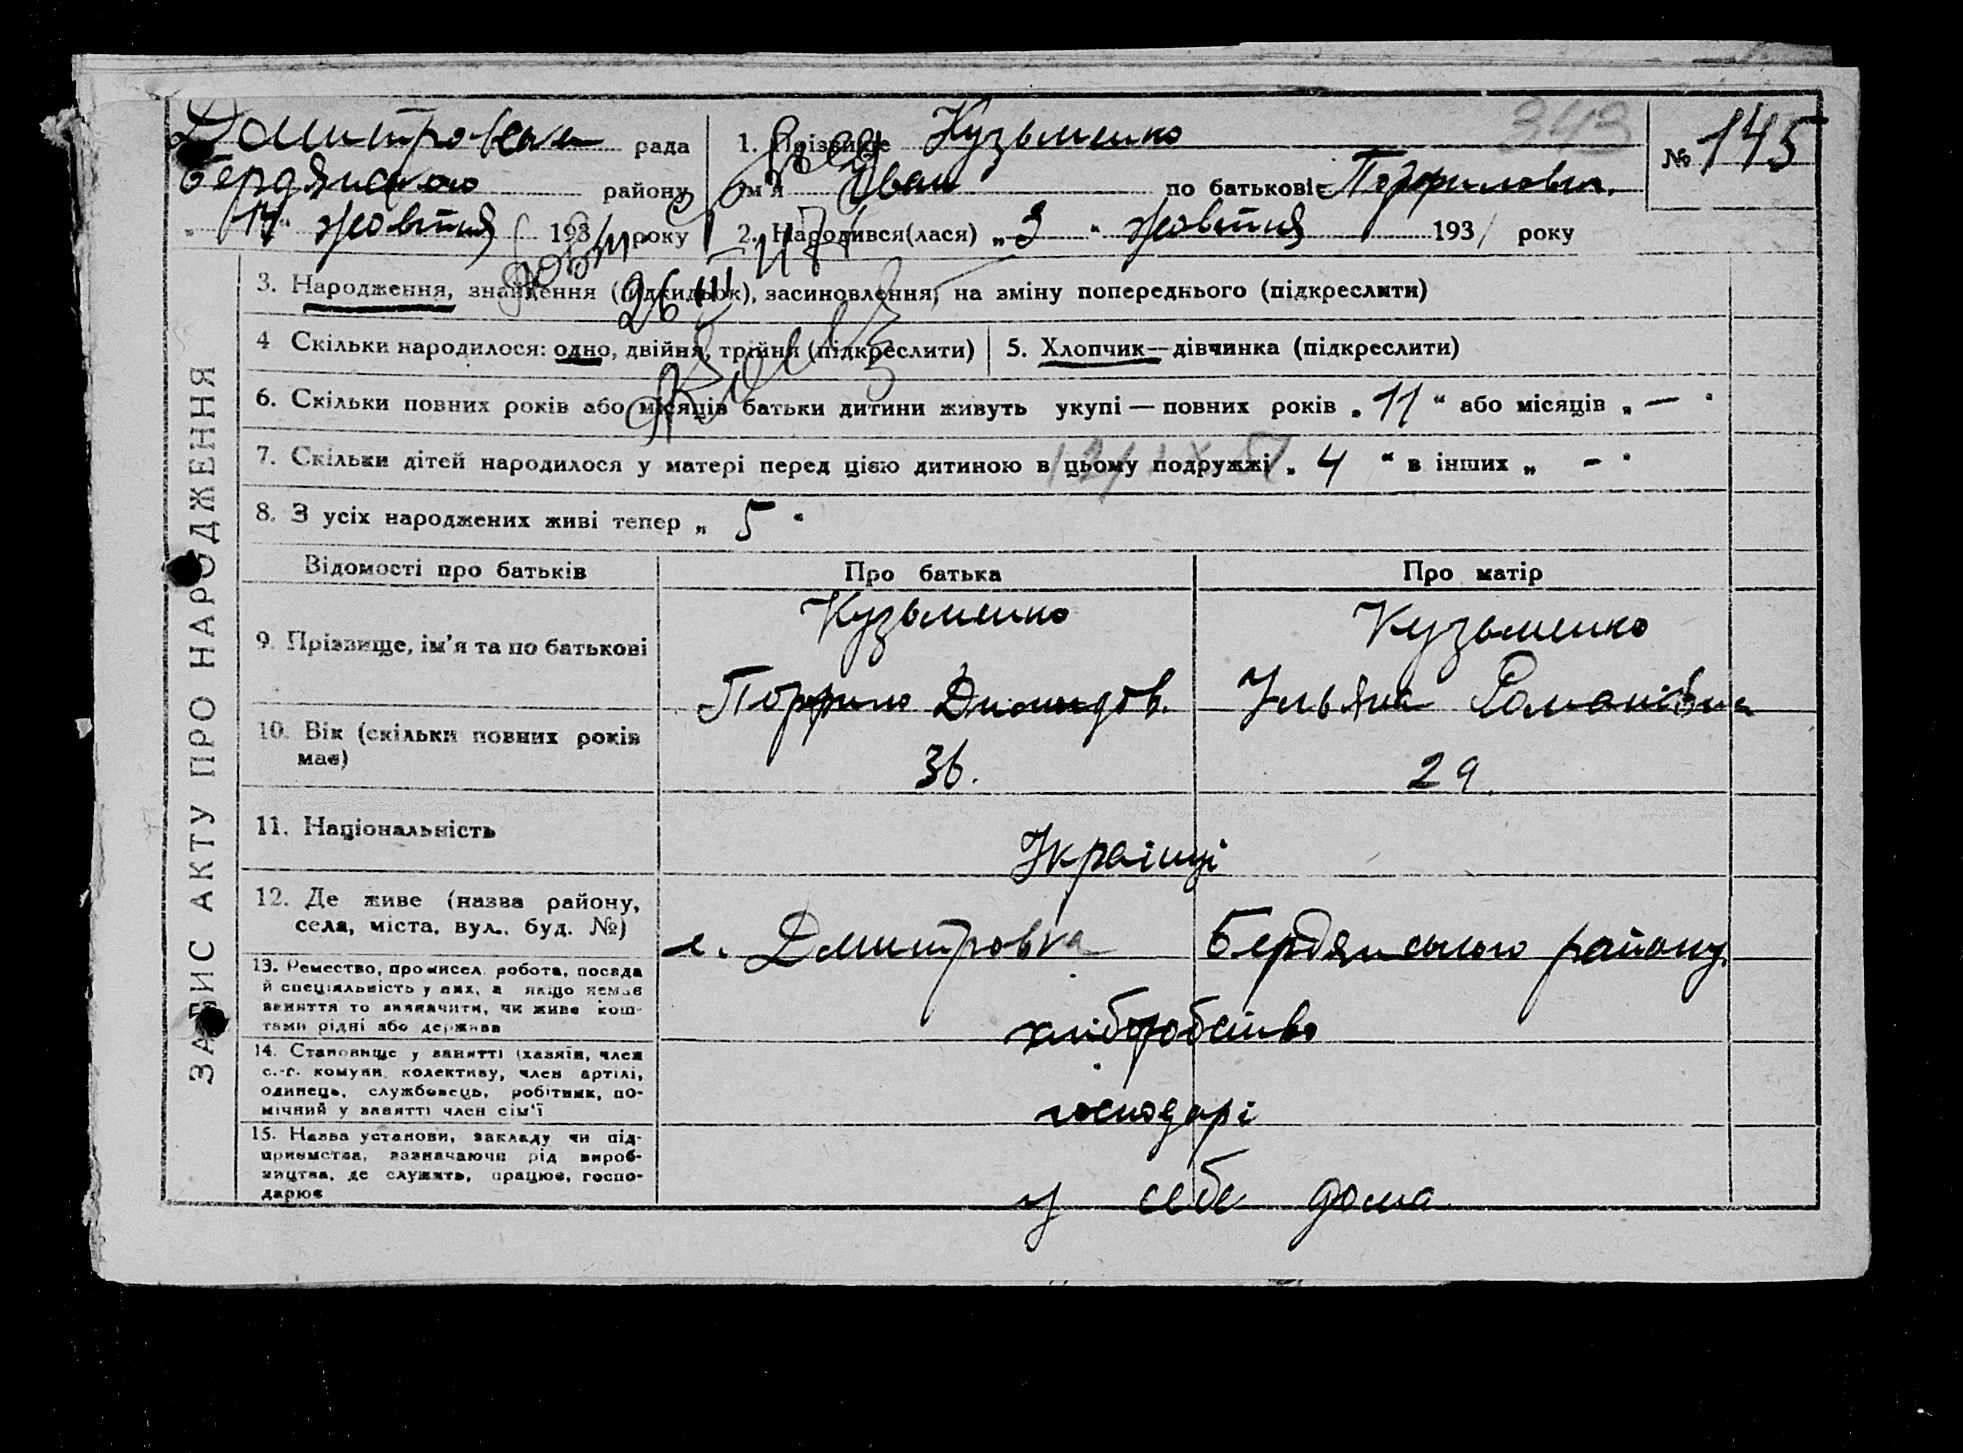 Дмитровська рада
Бердянського району
„ 17 " жовтня 1931 року
1. Прізвище Кузьменко
ім'я Іван по батькові Порфилович.
2. Народився(лася) „ 3 " жовтня 1931 року
343
№ 145
ЗАПИС АКТУ ПРО НАРОДЖЕННЯ
3. Народження, знайдення (підкидьок), засиновлення, на зміну попереднього (підкреслити)
26 III
4 Скільки народилося: одно, двійня, трійня (підкреслити)
5. Хлопчик—дівчинка (підкреслити)
6. Скільки повних років або місяців батьки дитини живуть укупі — повних років „ 11 " або місяців „ — "
7. Скільки дітей народилося у матері перед цією дитиною в цьому подружжі „ 4 " в інших „ - "
8. З усіх народжених живі тепер „ 5 "
Відомості про батьків
Про батька
Про матір
9. Прізвище, ім'я та по батькові
Кузьменко
Порфило Диомидов.
Кузьменко
Ульяна Романівна
10. Вік (скільки повних років має)
36.
29
11. Національність
Українці
12. Де живе (назва району,
села, міста, вул., буд. №)
с. Дмитровка Бердянського району
13. Ремество, промисел, робота, посада
й спеціяльність у них, а якщо немає
заняття то зазначити, чи живе кош-
тами рідні або держава
хліборобство
14. Становище у занятті (хазяїн, член
с.-г. комуни, колективу, член артілі,
одинець, службовець, робітник, по-
мічний у занятті член сім'ї
господарі
15. Назва установи, закладу чи під-
приємства, зазначаючи рід вироб-
ництва, де служить, працює, госпо-
дарює
у себе дома